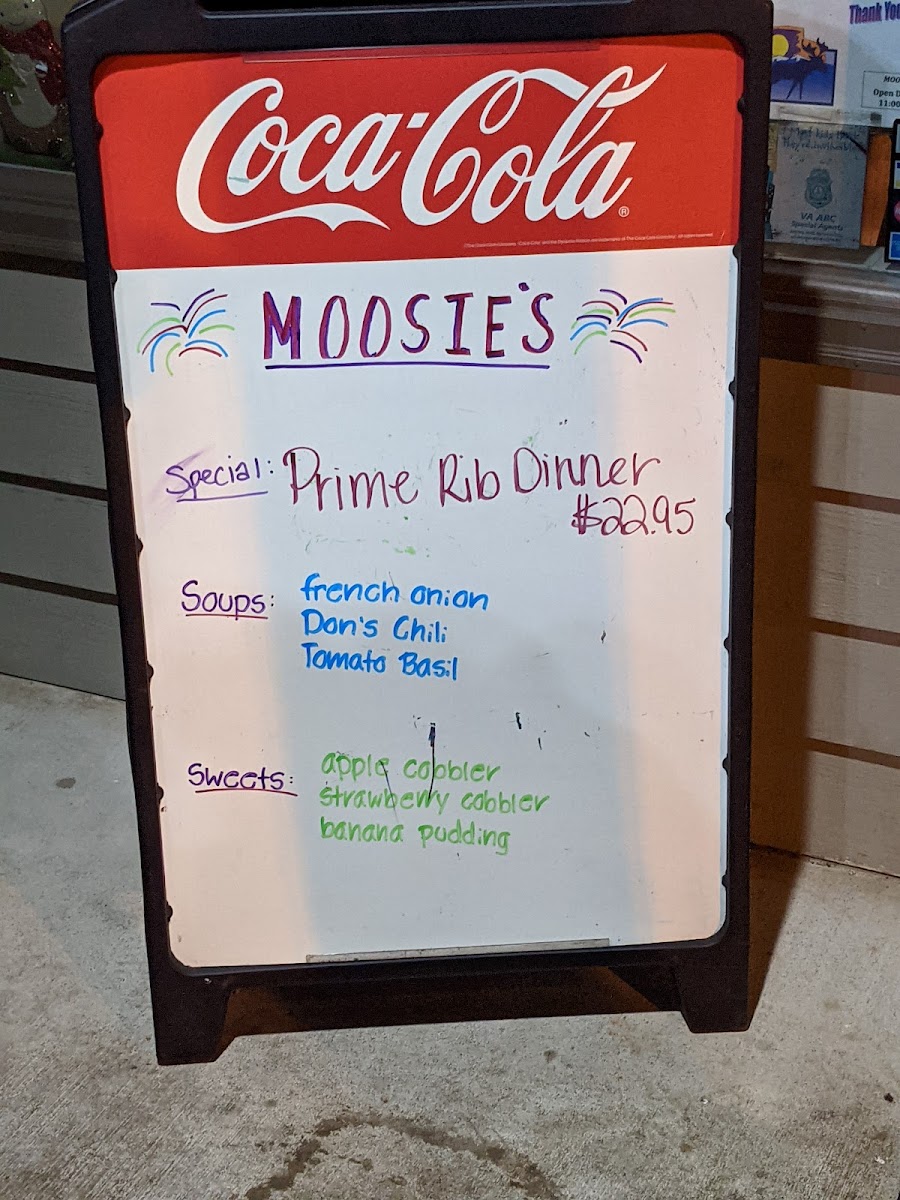 Coca-Cola®
MOOSIE'S
Special: Prime Rib Dinner
$22.95
Soups: french onion
Don's Chili
Tomato Basil
Sweets: apple cobbler
strawberry cobbler
banana pudding
Thank You
MOO
Open D
11:00
VA ABC
Special Agents